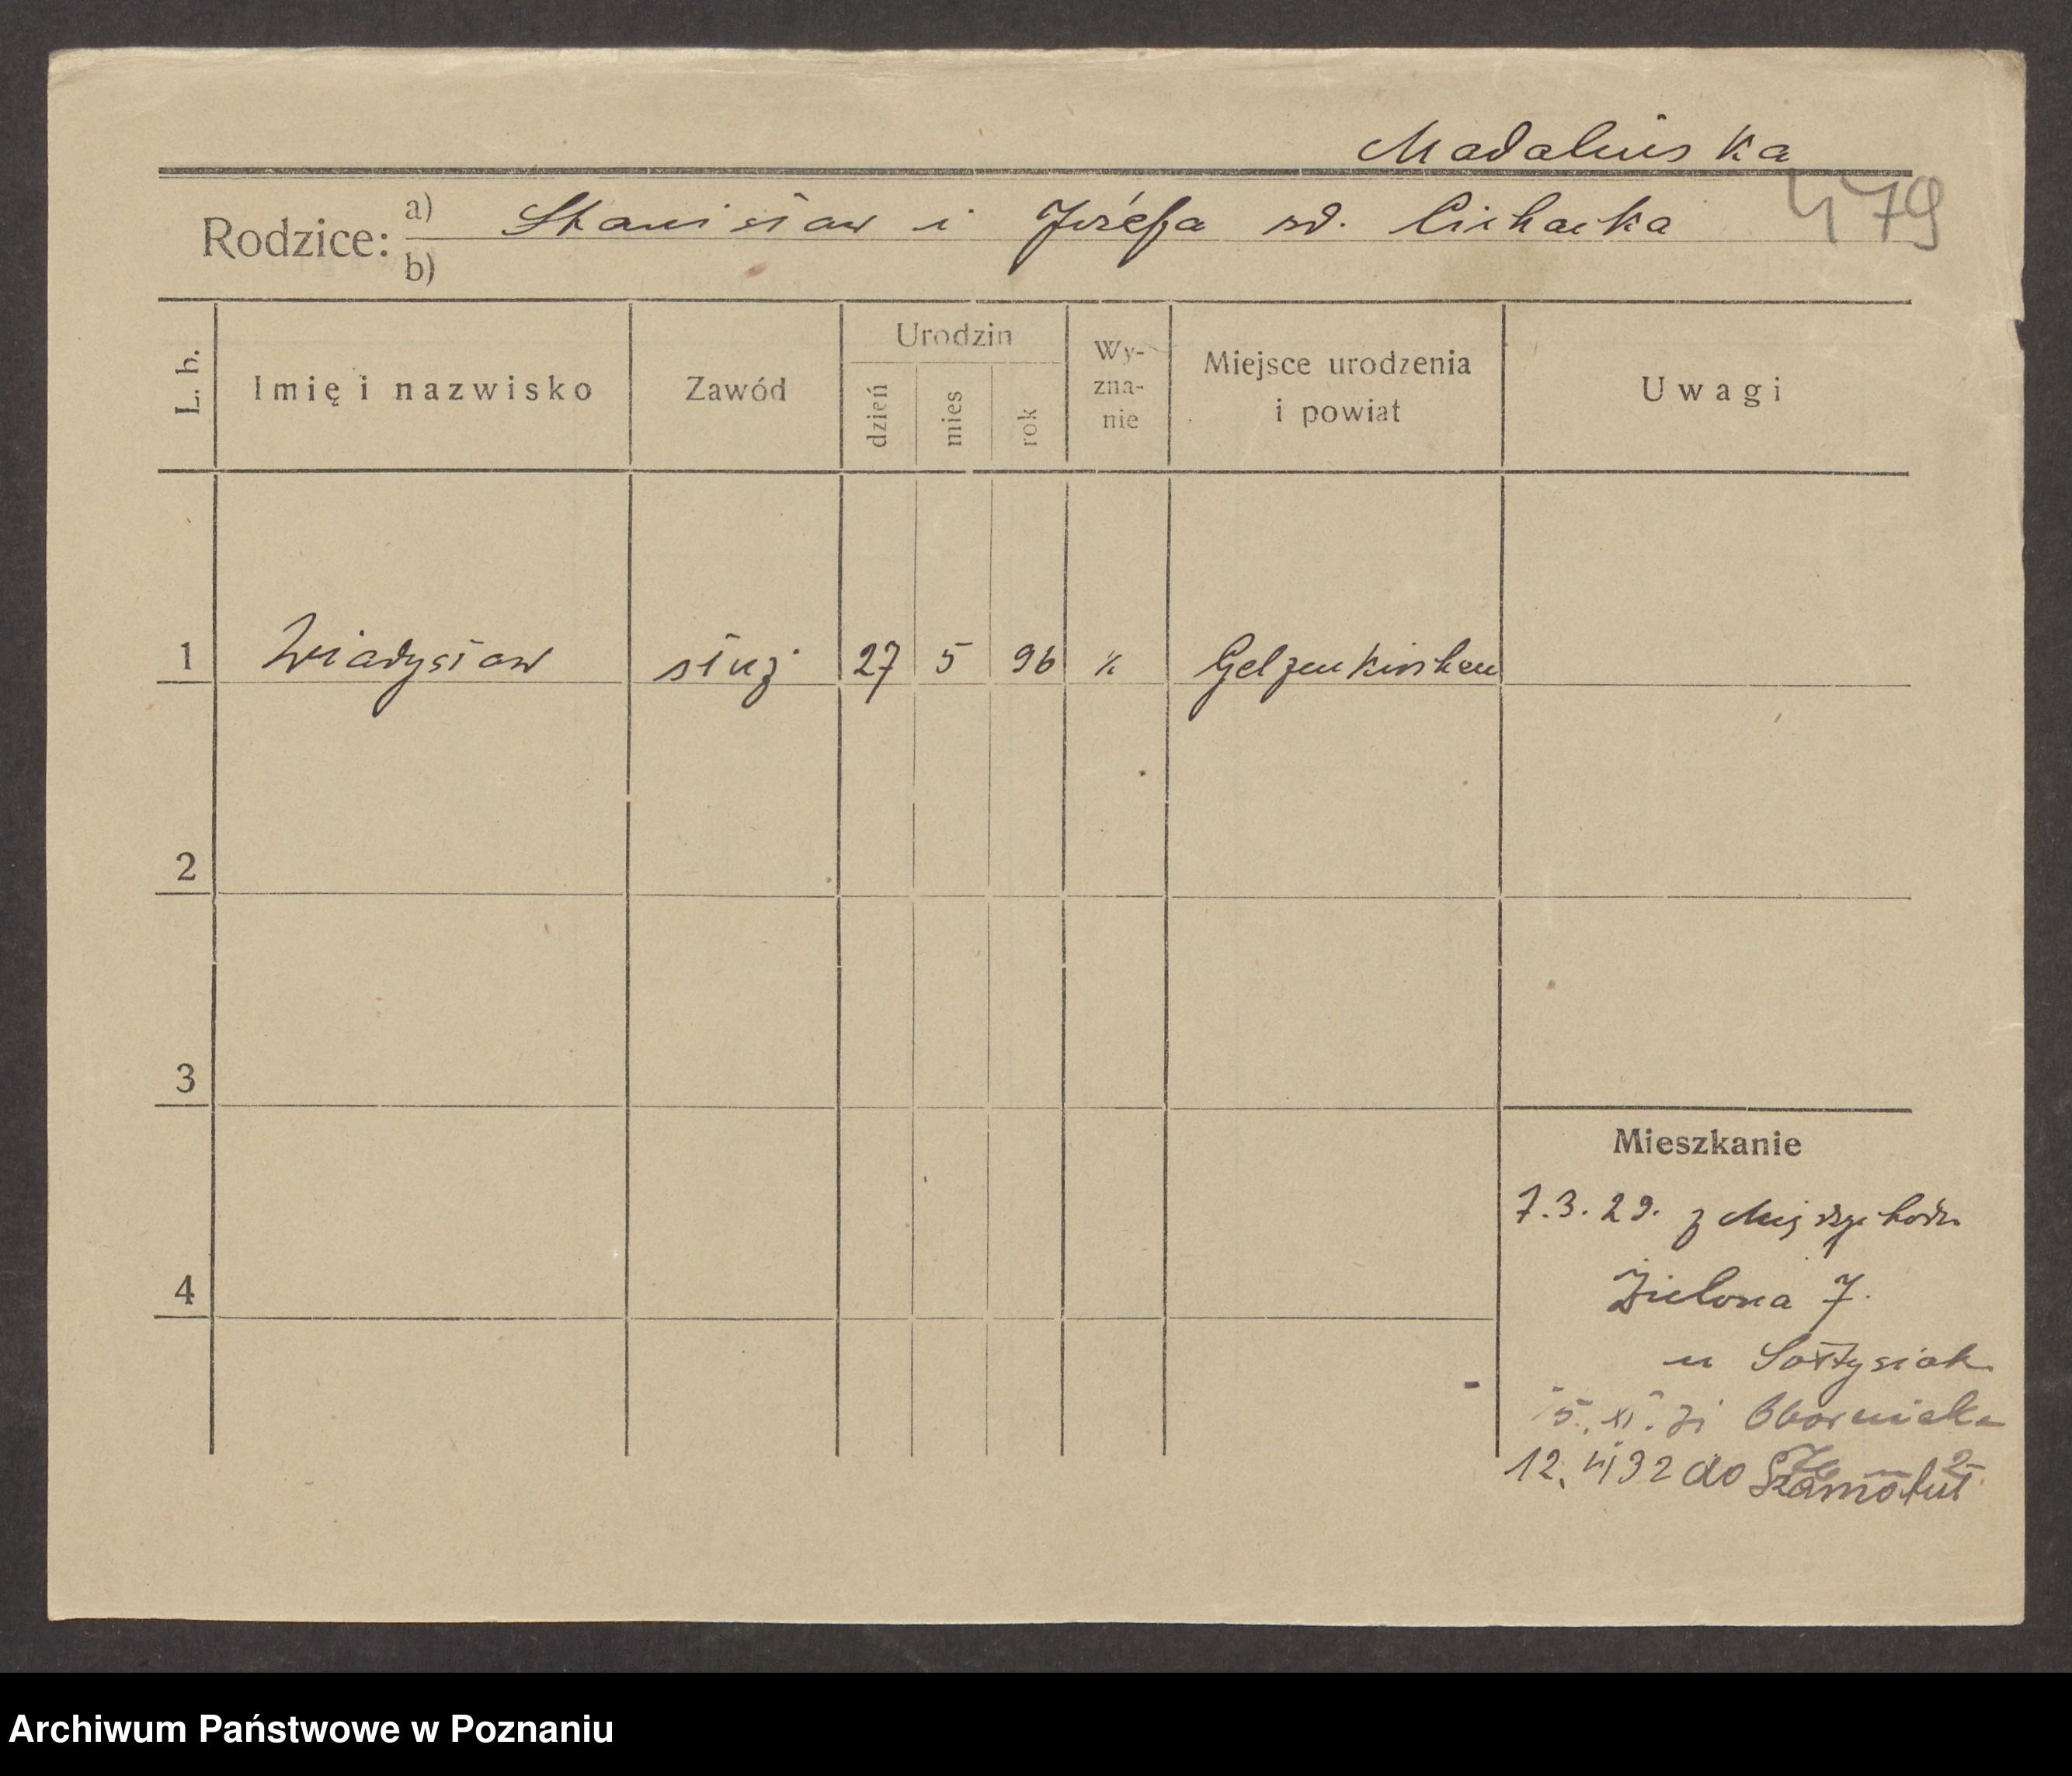 Madalińska
479
Rodzice: a) Stanisław i Józefa rd. Cichacka
b)
L. b. Imię i nazwisko Zawód Urodzin dzień mies rok Wy-zna-nie Miejsce urodzenia i powiat Uwagi
1 Władysław służ 27 5 96 k Gelzenkirchen
2
3
Mieszkanie
7.3.29. z Międzychodu
4
Zielona 7.
u Sołtysiak
5. XI. 31 Obornicka
12. 32 do Szamotuł
Archiwum Państwowe w Poznaniu